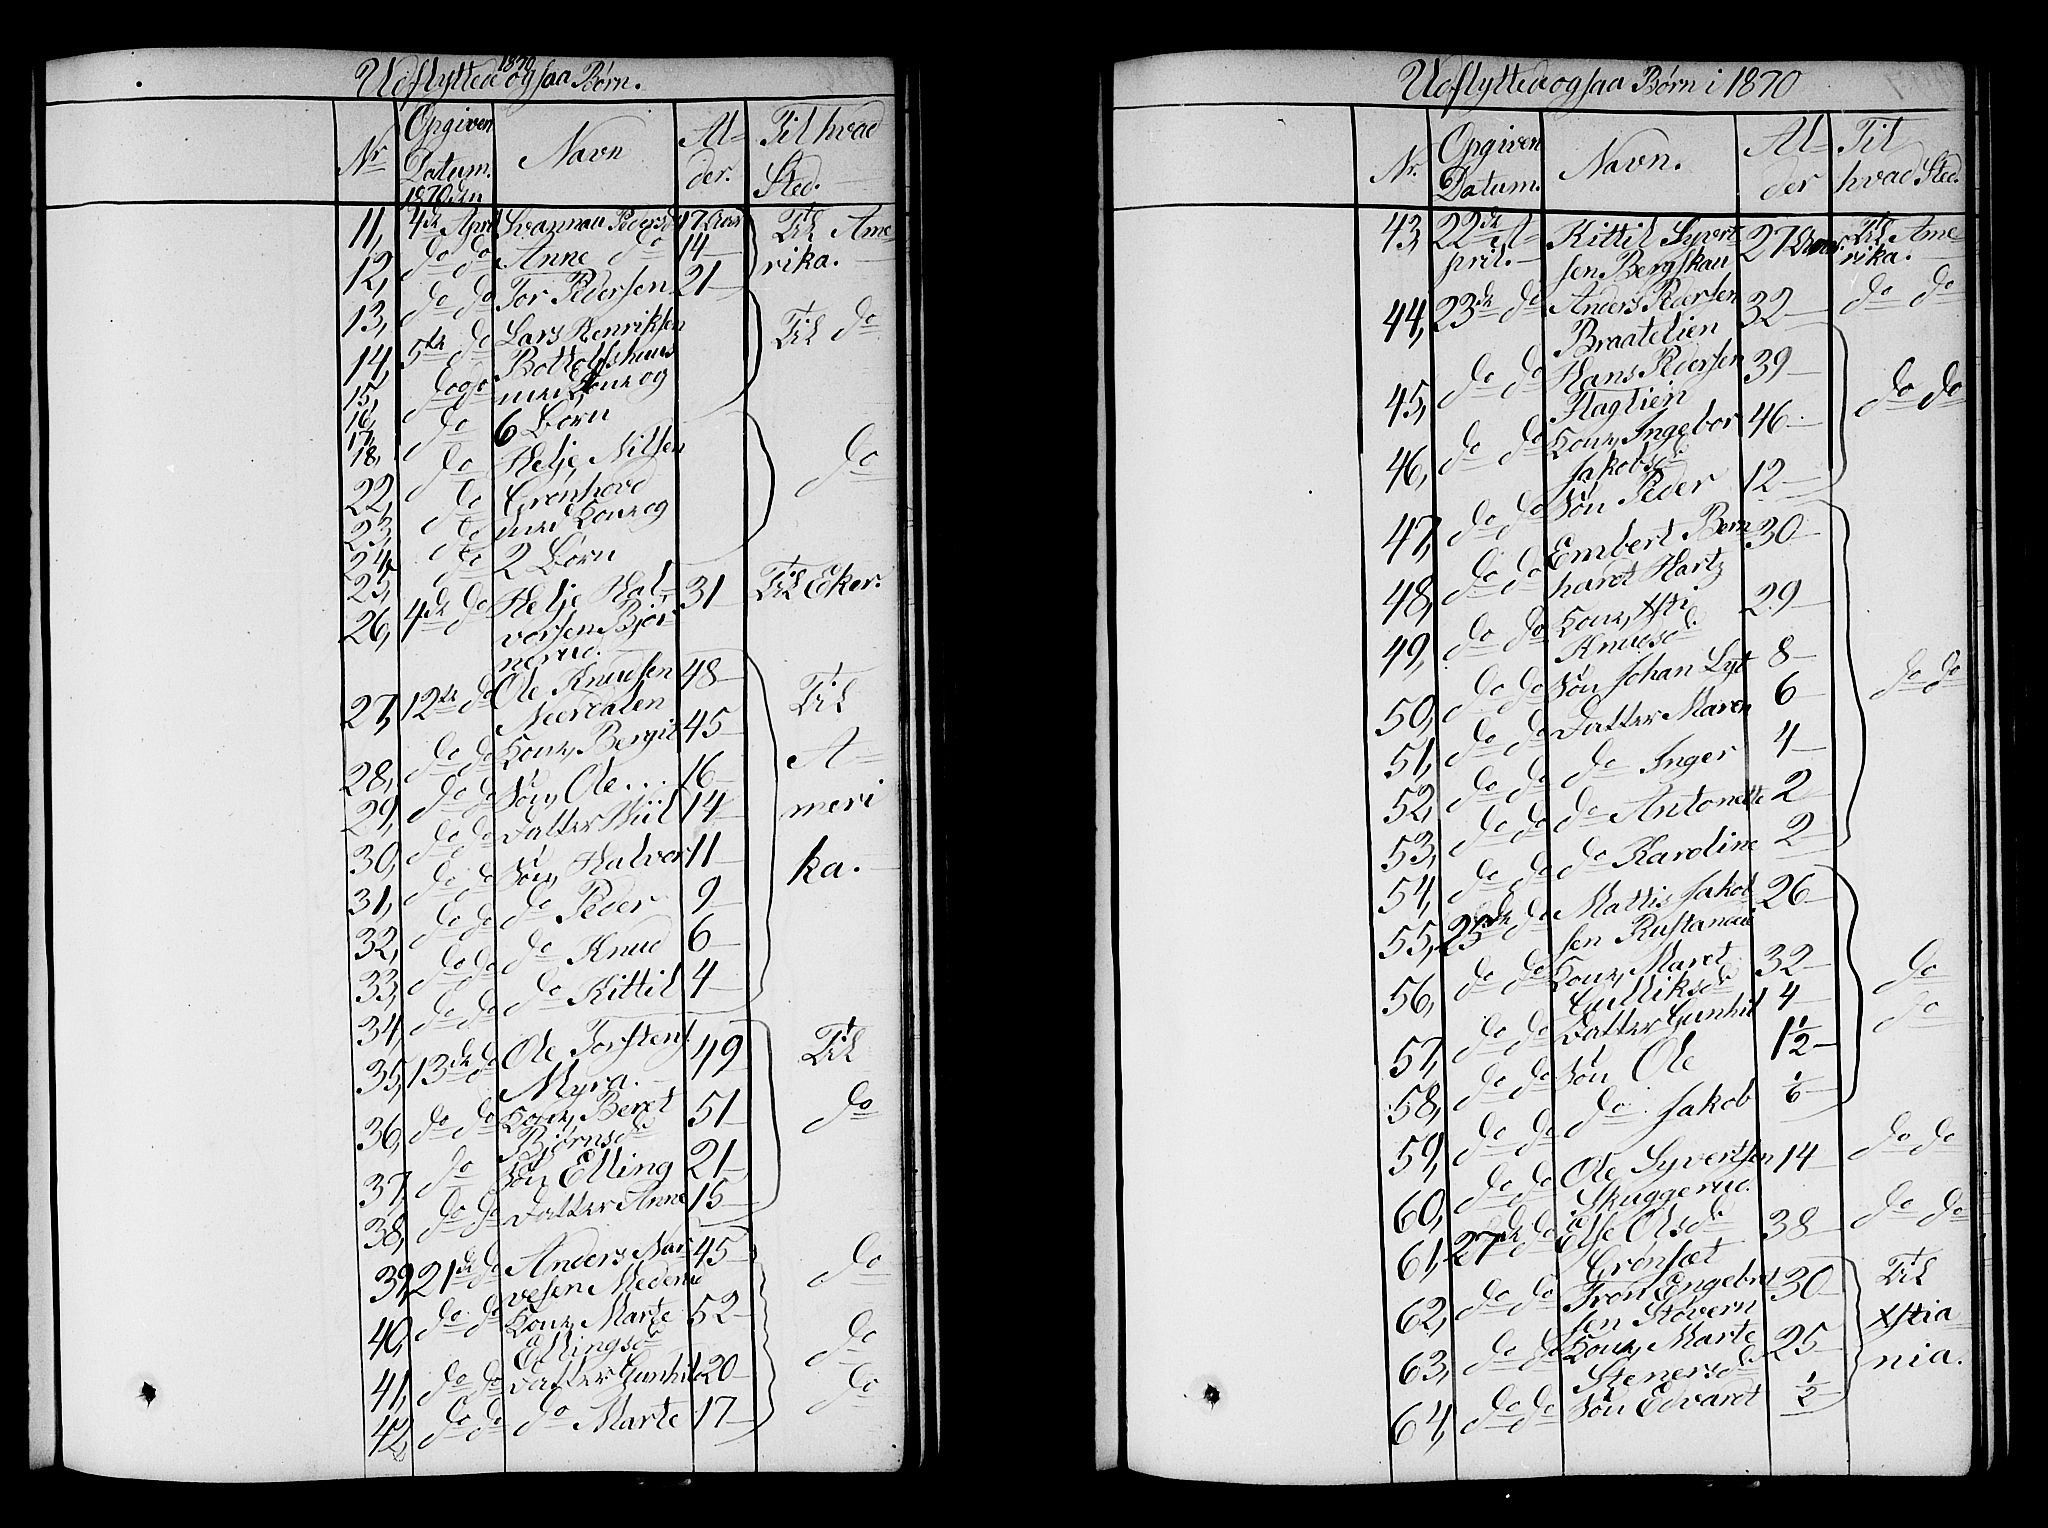 1870
Udflyttede ogsaa Børn.
Nr Opgiven Datum. 1870 den Navn Al- der. Til hvad Sted.
11, 4de April Svannau Pedersd 17 Aar Til Ame-
12, do do Anne do 14 rika.
13, do do Tor Pedersen 21
14, 5te do Lars Henriksen Til do
15, do do Bottolfshuus
16, do med Kone og
17,
18, 6 Børn
22, do Helje Nilsen do
23, do Grønhovd
24, do med Kone og
25, do 2 Børn
26, 4de do Helje Hal- 31 Til Eker.
vorsen Bjør
nerud.
27, 12te do Ole Knudsen 48 Til
Neerdalen
28, do do Kone, Bergit 45 A-
29, do do Søn, Ole 16
30, do do Datter 14 meri
31, do do Søn, Halvor 11 ka.
32, do do do Peder 9
33, do do do Knud 6
34, do do do Kittil 4
35, 13de do Ole Torstens 49 Til
Myra.
36, do do Kone, Beret 51 do
Bjørnsd
37, do Søn Elling 21
38, do do Datter Anne 15
39, 21de do Anders Nar- 45 do
vesen Mederud
40, do do Kone, Marte 52
Ellingsd do
41, do do Datter Gunhil 20
42, do do do Marte 17 do
Udflyttede ogsaa Børn i 1870
Nr. Opgiven Datum. Navn. Al- der Til hvad Sted.
43, 22de A- Kittil Syvert 27 Aar. Til Ame
pril. sen Bergskau rika.
44, 23de do Anders Pedersen 32 do do
Braatelien
45, do do Hans Pedersen 39 do do
Haglien
46, do do Kone, Ingebor 46
Jakobsd
47, do do Søn Peder 12
48, do do Embert Bern 30
hardt Hartz
49, do do Kone, 29
Knudsd
50, do do Søn Johan Lyt 8 do do
51, do do Datter Maren 6
52, do do do Inger 4
53, do do do Antonette 2
54, do do do Karoline 2
55, 25de do Mattis Jakob 26
sen Rustand
56, do do Kone, Maret 32 do
Gulliksd
57, do do Datter Gunhil 4 do
58, do do Søn Ole 1½
59, do do do Jakob 1/6
60, do do Ole Syvertsen 14 do do
Skuggerud.
61, 27de do Else Olsd 38 do do
Grønsæt
62, do do Tron Engebret 30 Til
sen Støvern
63, do do Kone, Marte 25 Xstia
Stenersd nia.
64, do do Søn Edvardt ½